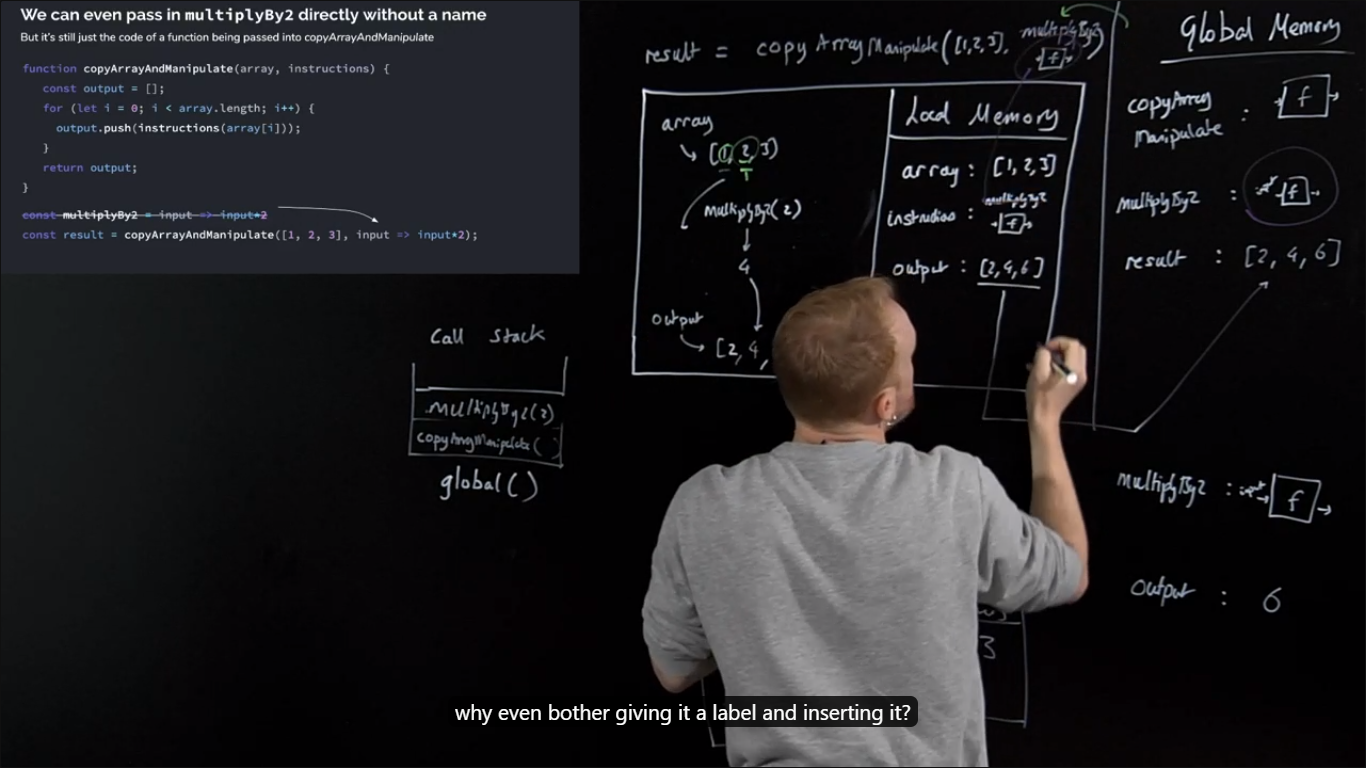 We can even pass in multiplyBy2 directly without a name
But it's still just the code of a function being passed into copyArrayAndManipulate
function copyArrayAndManipulate(array, instructions) {
const output = [];
for (let i = 0; i < array.length; i++) {
output.push(instructions(array[i]));
}
return output;
}
const multiplyBy2 = input => input*2
const result = copyArrayAndManipulate([1, 2, 3], input => input*2);
result = copyArrayManipulate([1,2,3], multiplyBy2)
f
array
[1, 2, 3]
multiplyBy2(2)
4
output
[2, 4,
Local Memory
array : [1, 2, 3]
multiplyBy2
instruction : f
output : [2, 4, 6]
Global Memory
copyArray
Manipulate : f
multiplyBy2 : f
result : [2, 4, 6]
multiplyBy2 : input f
output : 6
Call Stack
multiplyBy2(2)
copyArrayManipulate( )
global()
3
why even bother giving it a label and inserting it?